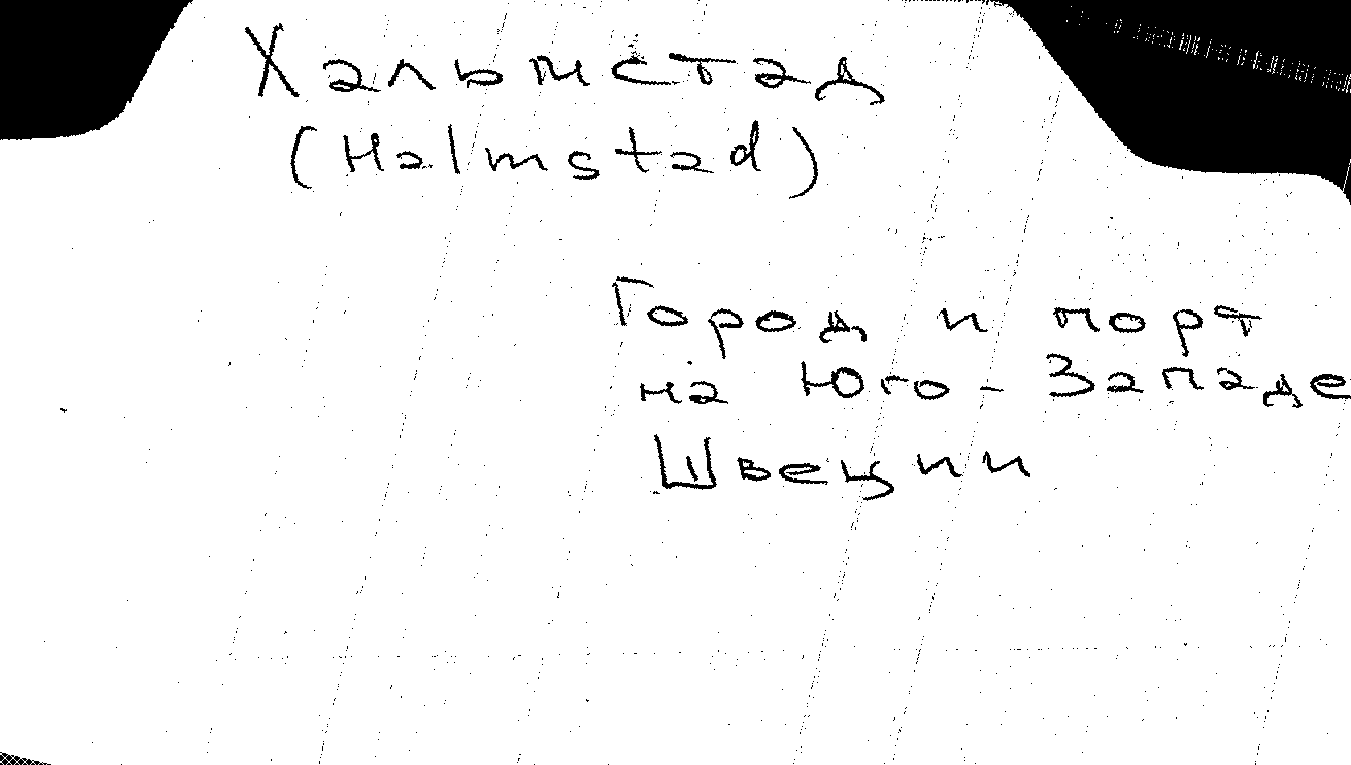 Хальмстад
(Halmstad)
Город и порт
на Юго-Западе
Швеции